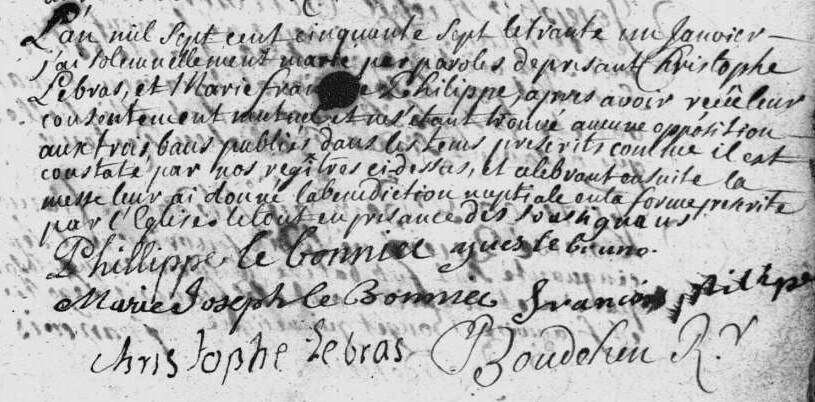 L'an mil sept cent cinquante sept le trante un Janvier
j'ai solemnellement marié par paroles de présant Christophe
Lebras, et Marie Philippe, apres avoir reçû leur
consentement mutuel et ne s'étant trouvé aucune oppósition
aux trois bans publiés dans les tems prescrits comme il est
constaté par nos regîtres cidessus, et celebrant ensuite la
messe leur ai donné la benediction nuptiale en la forme prescrite
par l'Eglise. le tout en présance des soussignans
Phillippe le bonniec yves le bruno.
Marie Joseph le Bonniec francois
christophe lebras R.r